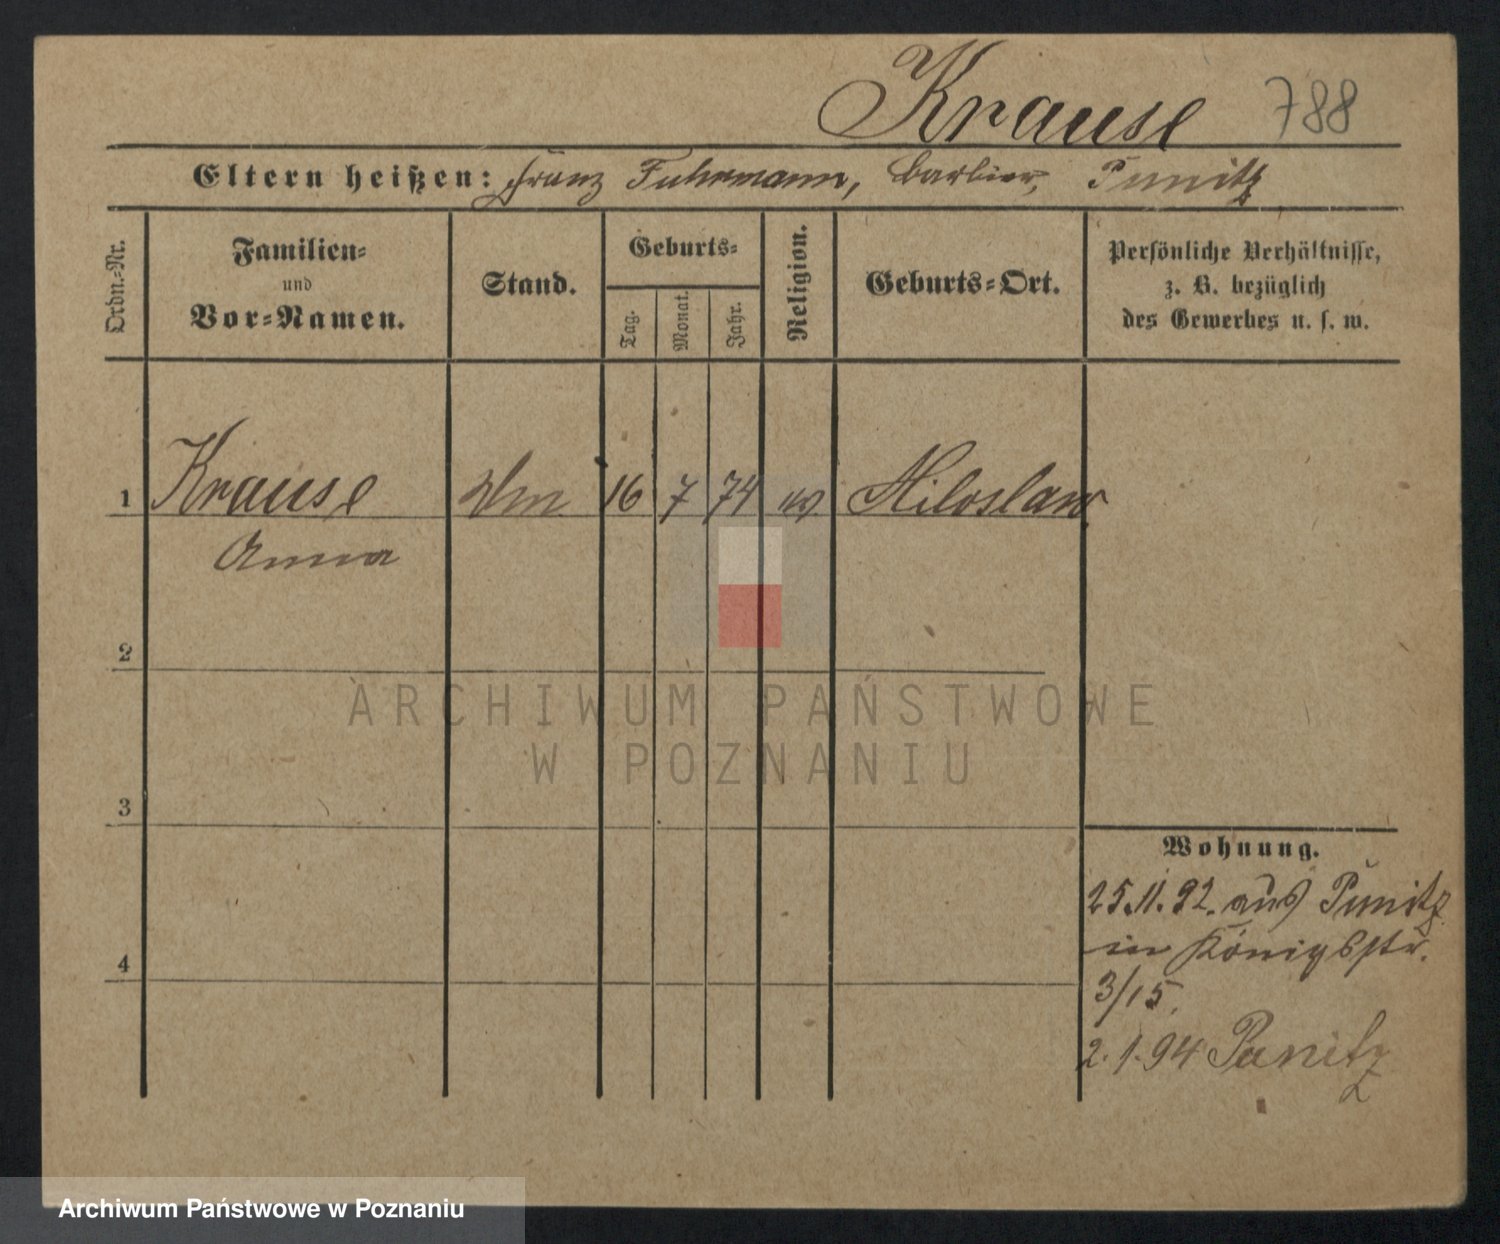 Krause 788
Eltern heißen: Franz Fuhrmann, Barbier, Punitz
Ordn.-Nr.
Familien-
und
Vor-Namen.
Stand.
Geburts-
Tag.
Monat.
Jahr.
Religion.
Geburts-Ort.
Persönliche Verhältnisse,
z. B. bezüglich
des Gewerbes u. s. w.
1 Krause 16 7 74 Miloslaw
Anna
2
3
4
Wohnung.
25.11.92. aus Punitz
in Königsstr.
3/15.
2.1.94 Punitz
ARCHIWUM PAŃSTWOWE
W POZNANIU
Archiwum Państwowe w Poznaniu